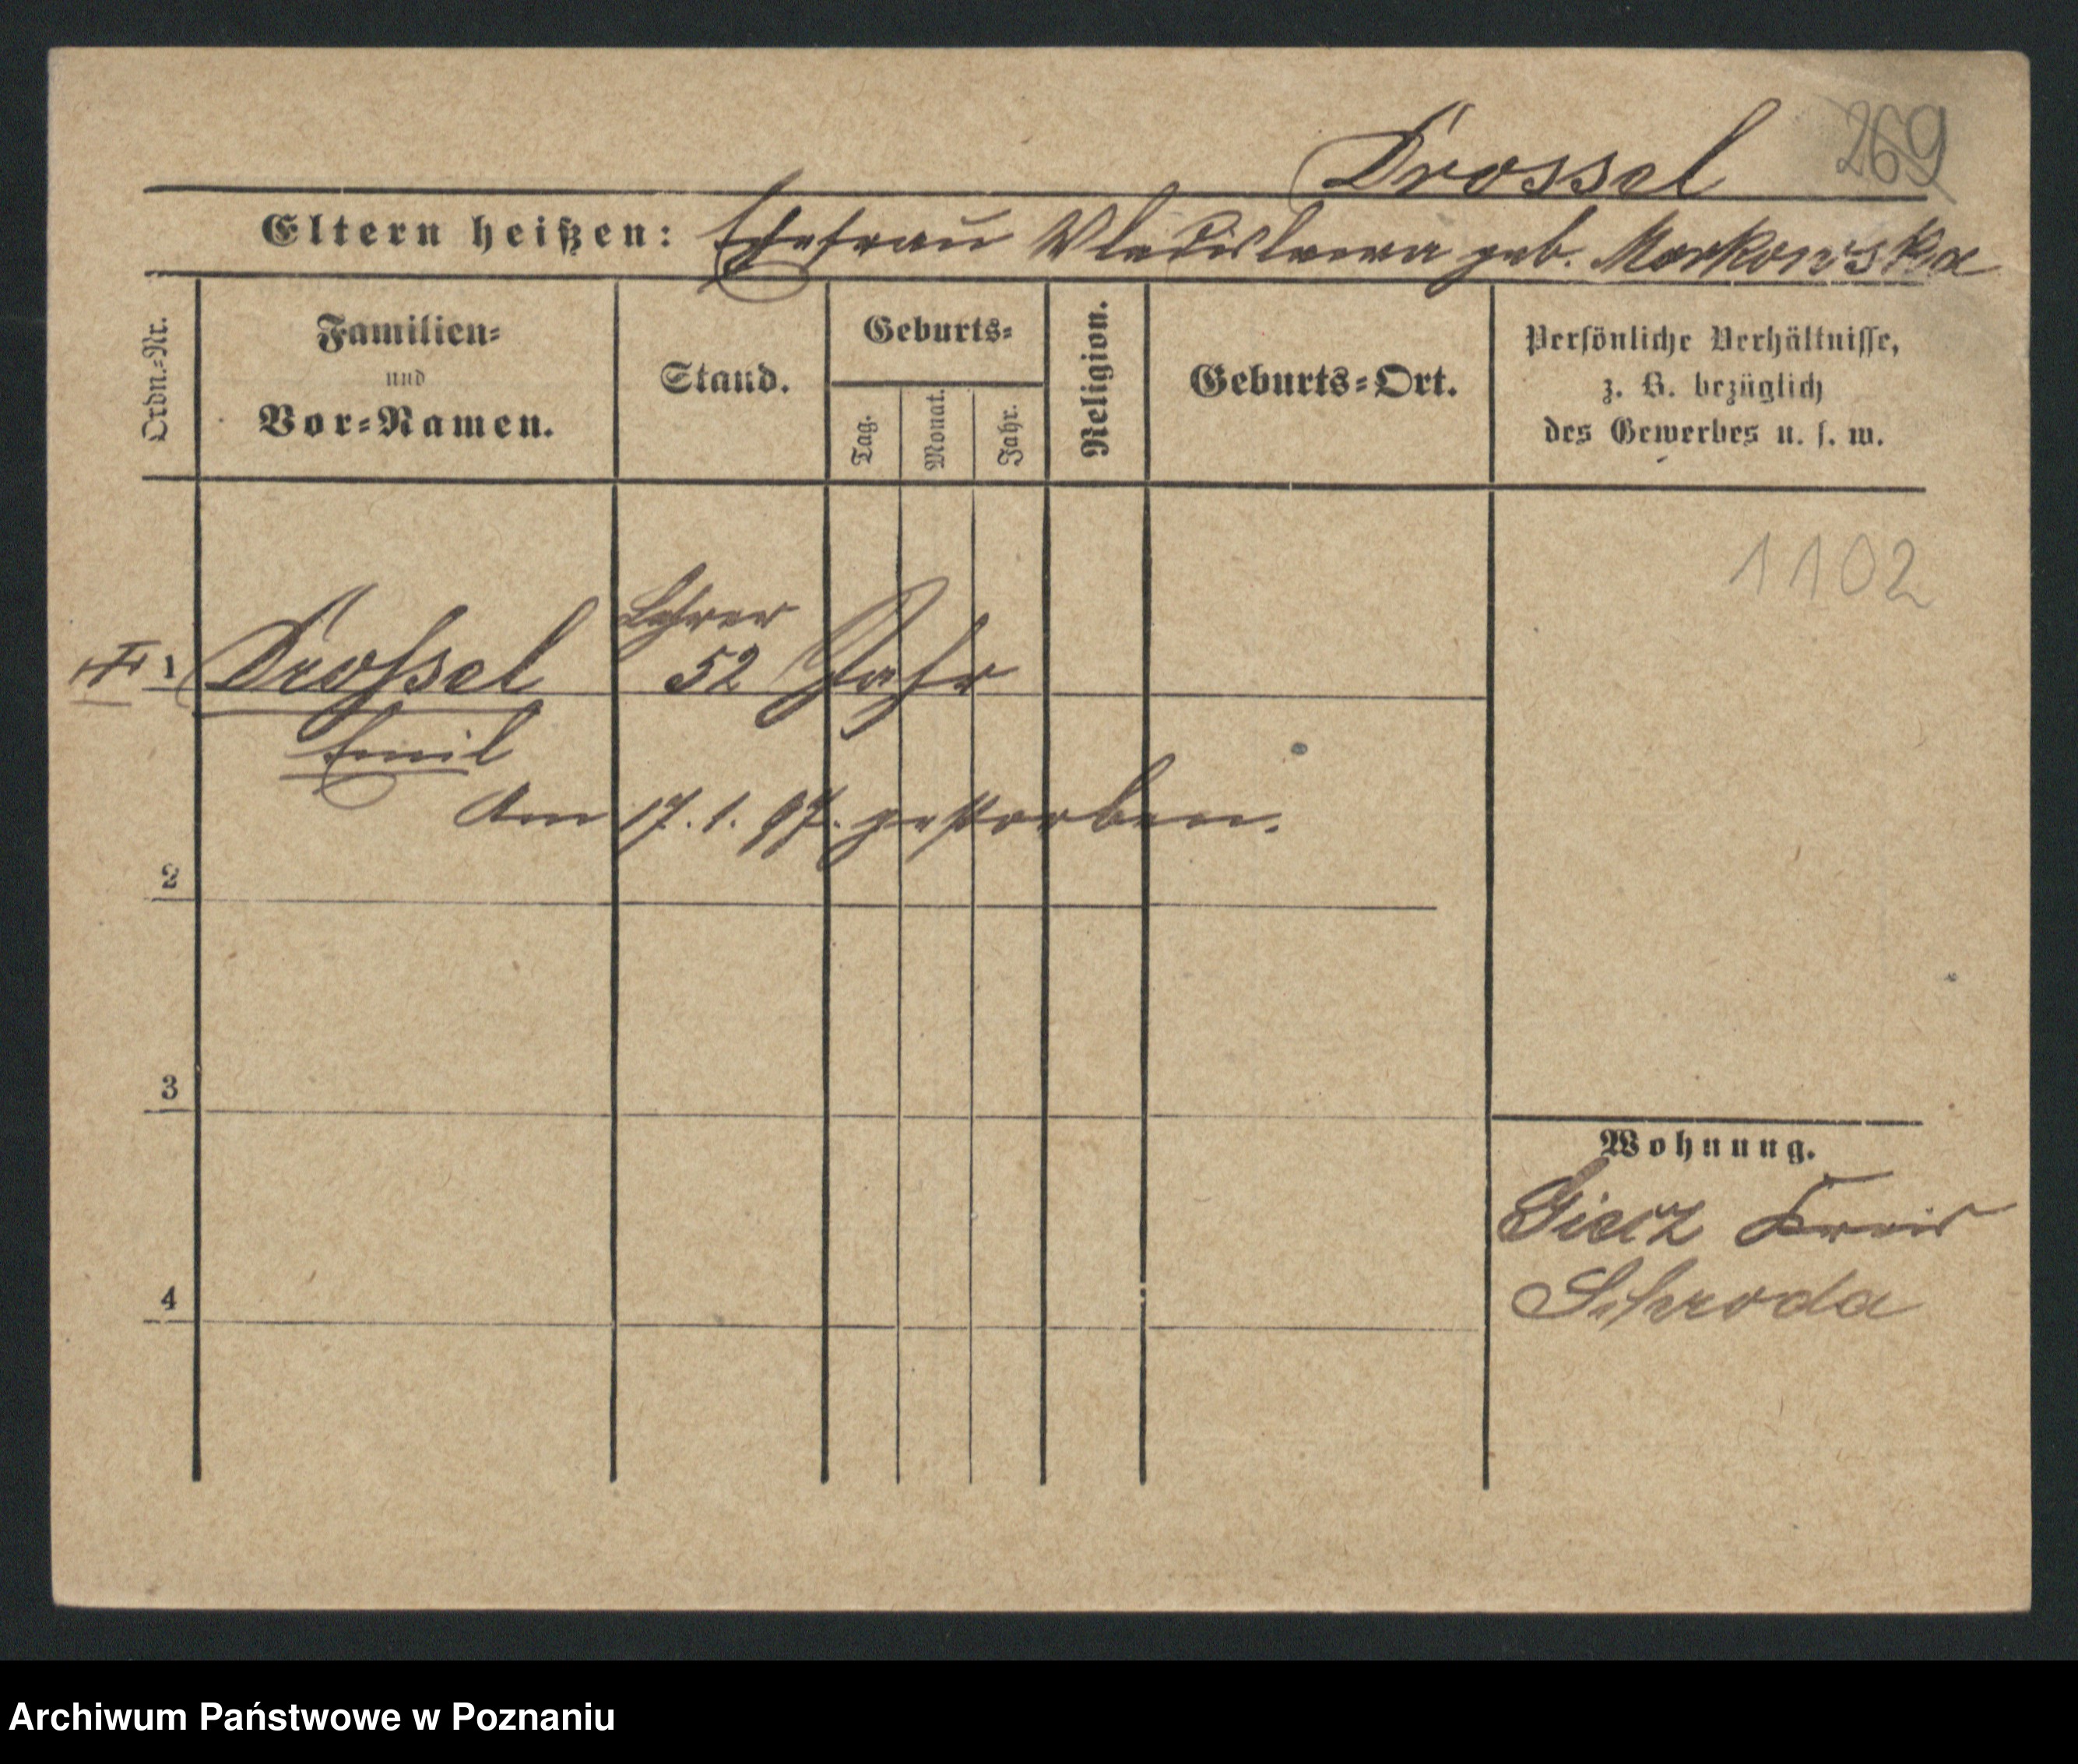 Drossel 269
Eltern heißen: Ehefrau Wladislawa geb. Morkowska
Ordn.-Nr.
Familien-
und
Vor-Namen.
Stand.
Geburts-
Tag.
Monat.
Jahr.
Religion.
Geburts-Ort.
Persönliche Verhältnisse,
z. B. bezüglich
des Gewerbes u. s. w.
1102
Lehrer
1 Drossel 52 Jahr
Emil
Am 17.1.97. gestorben.
2
3
4
Wohnung.
Giecz Kreis
Schroda
Archiwum Państwowe w Poznaniu